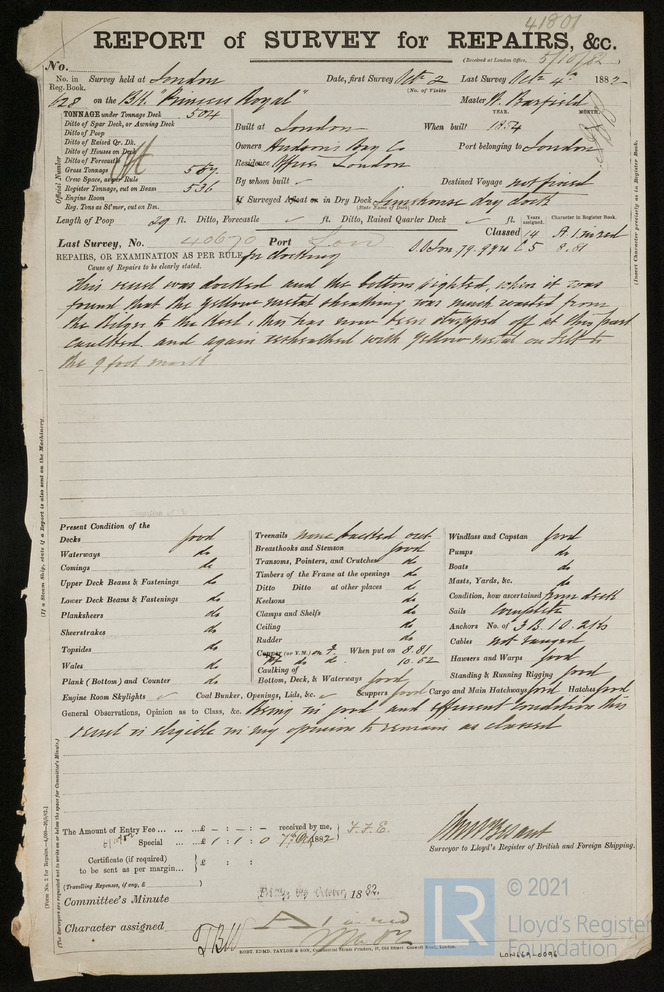 41801
REPORT of SURVEY for REPAIRS, &c.
(Received at London Office, 5/10/82
No.
No. in Reg. Book. Survey held at London Date, first Survey Octr 2 Last Survey Octr 4th 1882
(No. of Visits
628 on the Bk. "Princess Royal" Master W. Barfield
TONNAGE under Tonnage Deck 504
Ditto of Spar Deck, or Awning Deck
Ditto of Poop
Ditto of Raised Qr. Dk.
Ditto of Houses on Deck
Ditto of Forecastle
Gross Tonnage 587
Crew Space, as per Rule
Register Tonnage, cut on Beam 536
Engine Room
Reg. Tons as St'mer, cut on Bm.
Official Number
YEAR. MONTH.
Built at London When built 1854
Owners Hudson's Bay Co Port belonging to London
Residence Offices London
By whom built Destined Voyage not fixed
If Surveyed Afloat or in Dry Dock Limehouse dry dock
(State Name of Dock)
Length of Poop 29 ft. Ditto, Forecastle ft. Ditto, Raised Quarter Deck ft. Years assigned. Character in Register Book.
Classed 14 A.1. in red
Last Survey, No. 40670 Port Lon C 5 8.81
REPAIRS, OR EXAMINATION AS PER RULE, for docking
Cause of Repairs to be clearly stated.
This vessel was docked and the bottom sighted, when it was
found that the Yellow metal sheathing was much wasted from
the Bilges to the Keel, this has now been stripped off at this part
caulked and again resheathed with Yellow metal on Felt to
the 9 foot mark
Present Condition of the
Decks good
Waterways do
Comings do
Upper Deck Beams & Fastenings do
Lower Deck Beams & Fastenings do
Planksheers do
Sheerstrakes do
Topsides do
Wales do
Plank (Bottom) and Counter do
Treenails none backed out
Breasthooks and Stemson good
Transoms, Pointers, and Crutches do
Timbers of the Frame at the openings do
Ditto Ditto at other places do
Keelsons do
Clamps and Shelfs do
Ceiling do
Rudder do
Copper (or Y.M.) on F. When put on 8.81
Pt do do 10.82
Caulking of
Bottom, Deck, & Waterways good
Windlass and Capstan good
Pumps do
Boats do
Masts, Yards, &c. do
Condition, how ascertained from deck
Sails complete
Anchors No. of 3 B. 1 O. 2 Ks
Cables not ranged
Hawsers and Warps good
Standing & Running Rigging good
Engine Room Skylights Coal Bunker, Openings, Lids, &c. Scuppers good Cargo and Main Hatchways good Hatches good
General Observations, Opinion as to Class, &c. Being in good and efficient condition this
vessel is eligible in my opinion to remain as classed
The Amount of Entry Fee ... ... ... £ - : - : - received by me, F.F.E.
6/10/82 Special ... £ 1 : 1 : 0 7 Oct 1882
Certificate (if required) to be sent as per margin... £ : :
(Travelling Expenses, if any, £
Surveyor to Lloyd's Register of British and Foreign Shipping.
Committee's Minute October, 1882.
Character assigned A 1 in red
ROBT. EDMD. TAYLOR & SON, Commercial Steam Printers, 19, Old Street Goswell Road, London.
(If a Steam Ship, state if a Report is also sent on the Machinery.
(Insert Character precisely as in Register Book.
(The Surveyors are requested not to write on or below the space for Committee's Minute.)
LR
© 2021
Lloyd's Register
Foundation
LON669-0096